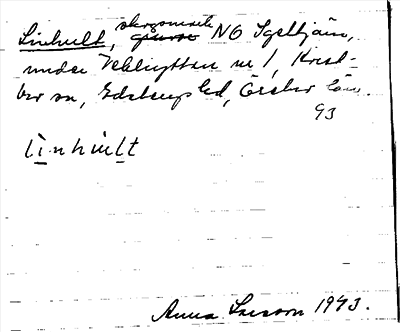 Linhult, skogsområde NO Igeltjärn,
under Vekhyttan nr 1, Kvist-
bro sn, Edsbergs hd, Örebro län.
93
linhult
Anna Larsson 1943.